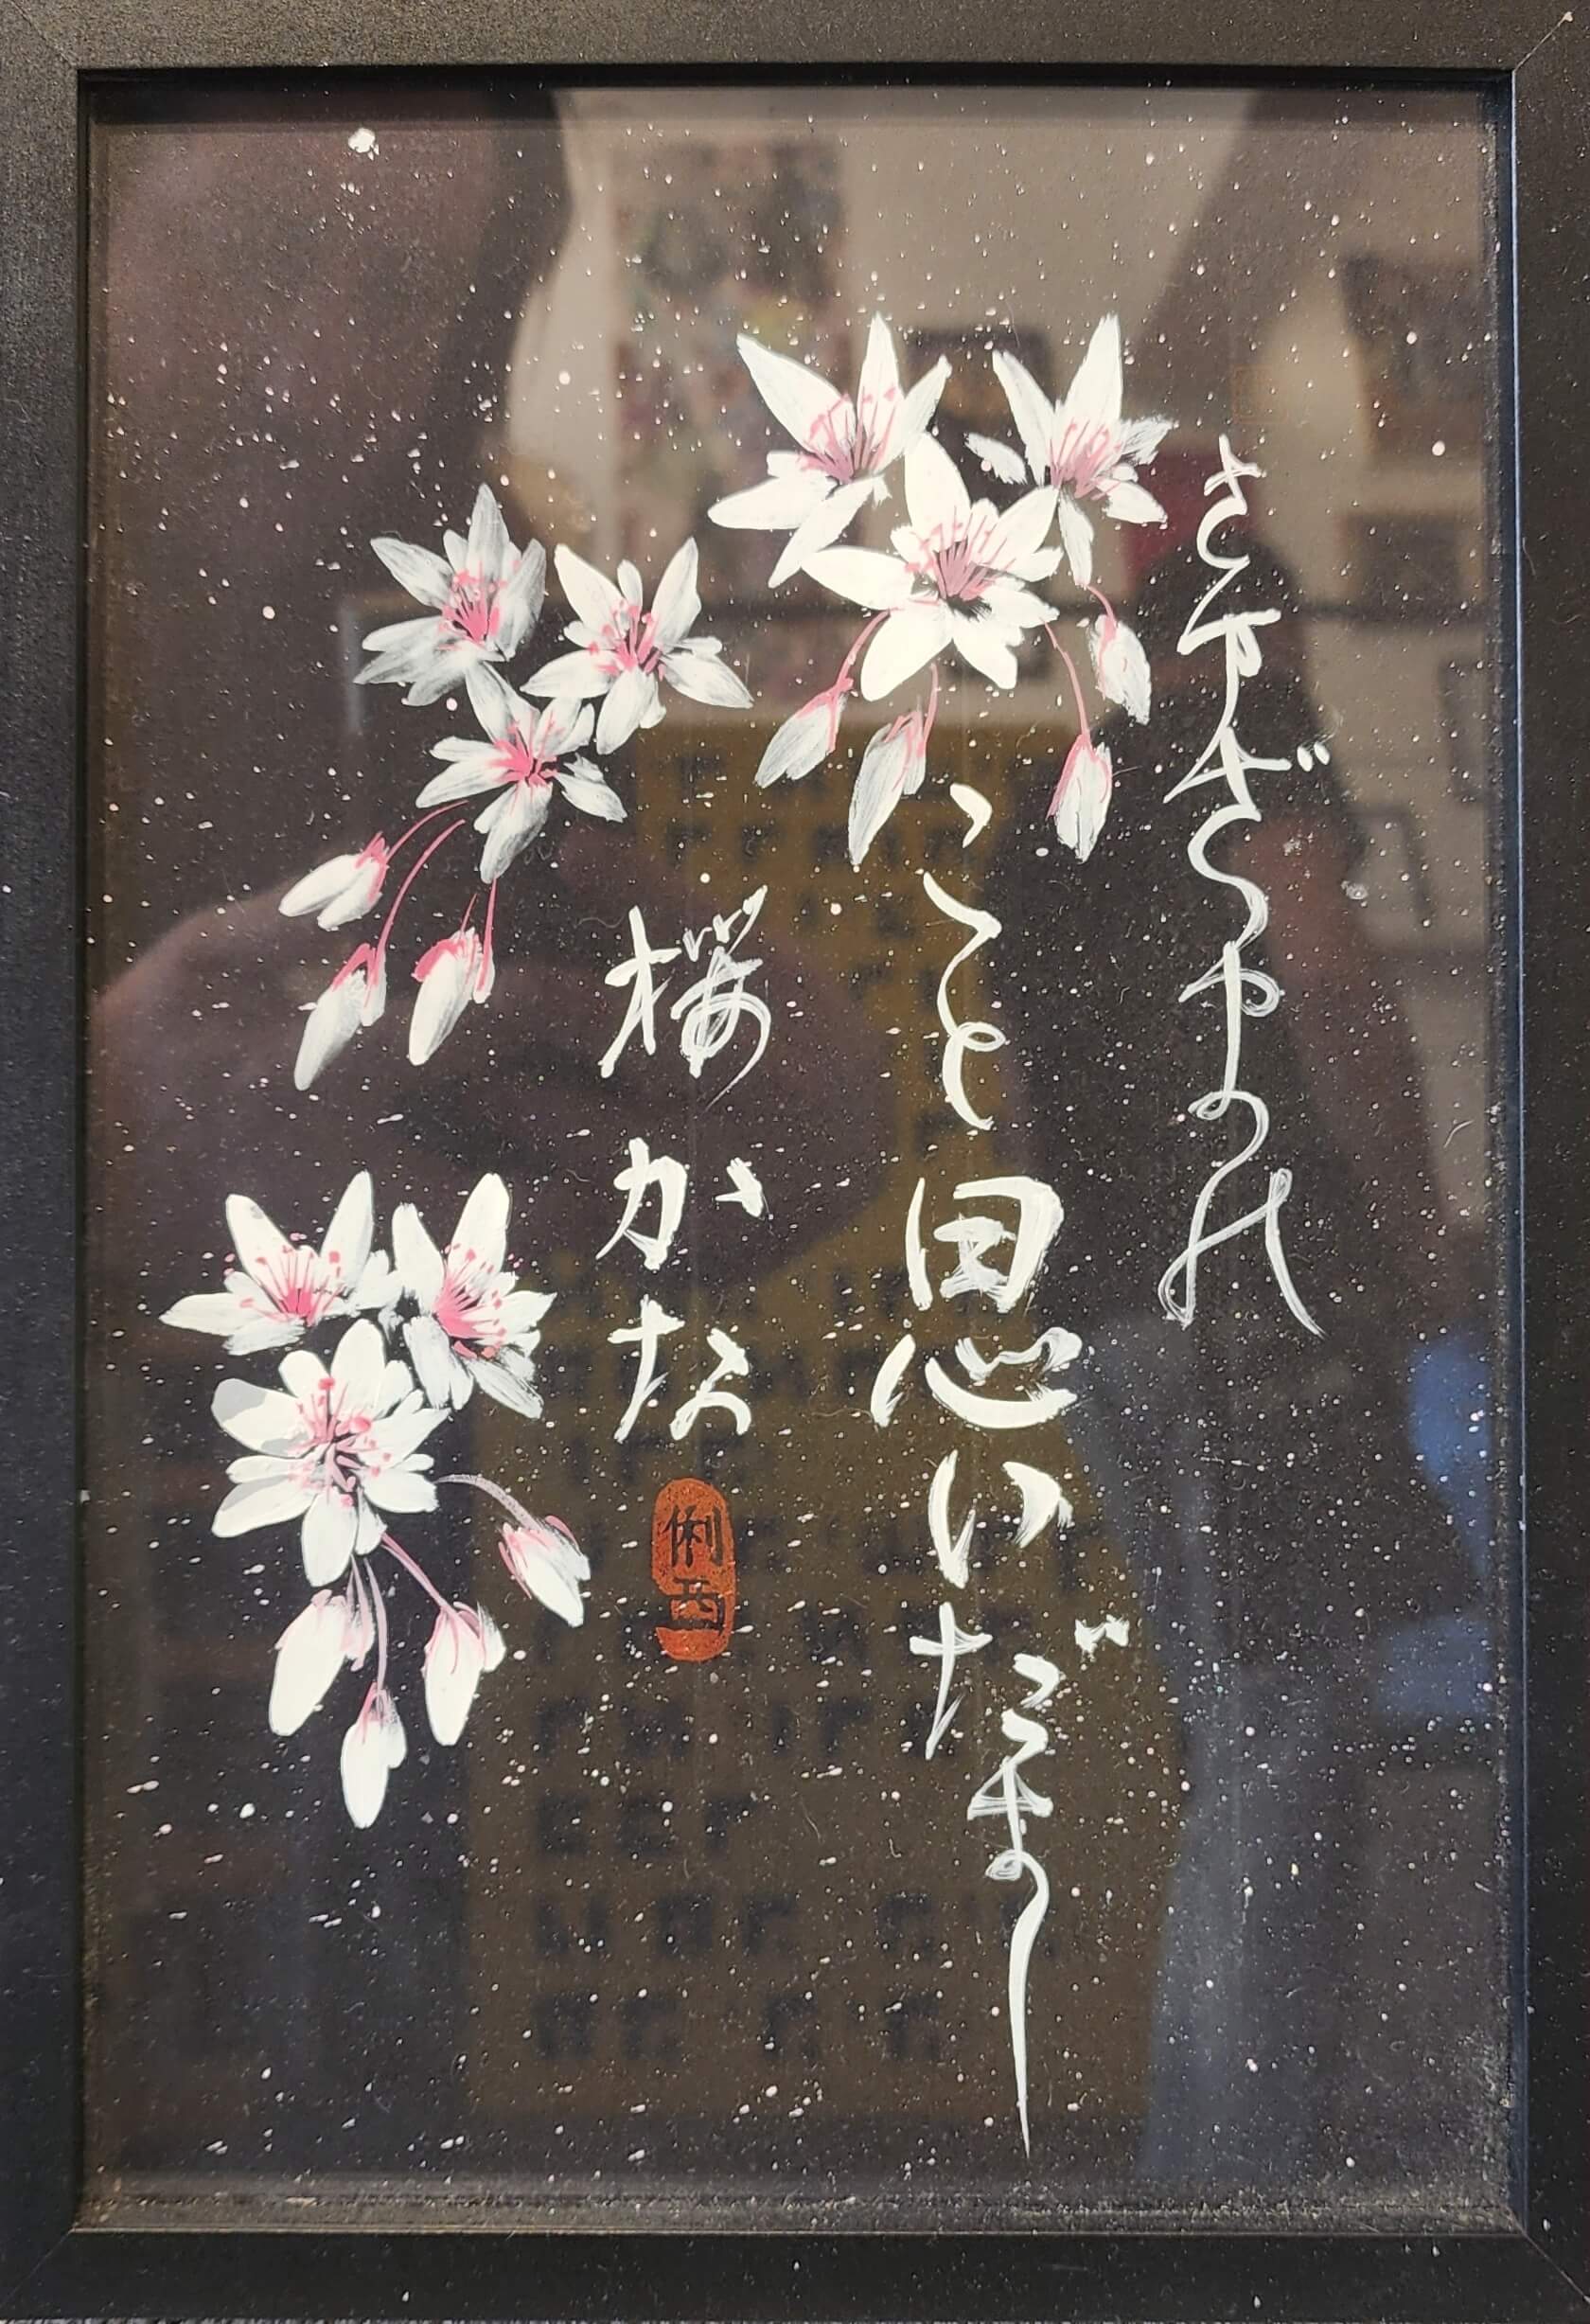 さまざまの
こと思いだす
桜かな
俐西